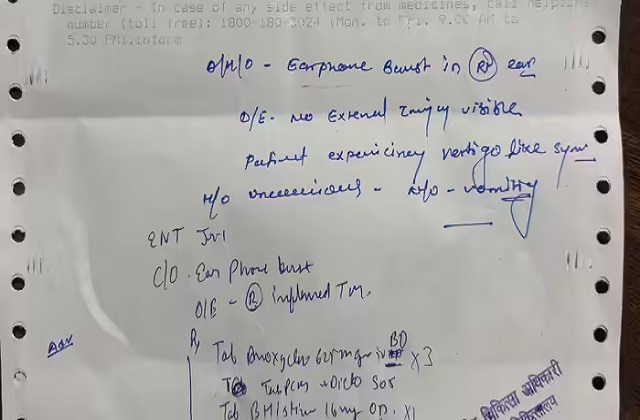 Disclaimer - In case of any side effect from medicines, call helpline
number (toll free): 1800-180-3024 (Mon. to Fri. 9.00 AM to
5.30 PM).inform
A/H/O - Earphone Burst in (Rt) ear
O/E - No External Injury visible
Patient experiencing vertigo like sym
H/O unconscious - N/O - vomiting
ENT
C/O. Ear Phone burst
O/E - (R) inflamed TM.
Adv
Rx
BD
Tab 625mg X3
Tab + Diclo SOS
Tab 16mg OD. X1
चिकित्सा अधिकारी
चिकित्सालय